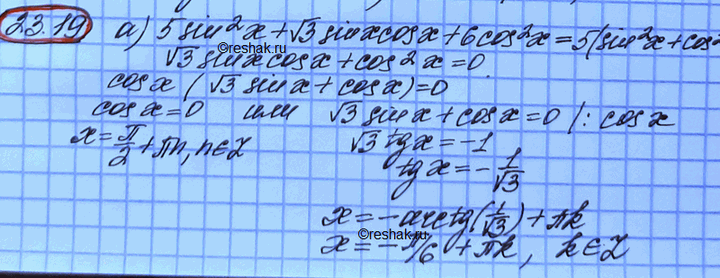 23.19 а) 5 sin²x + √3 sinx cosx + 6 cos²x = 5(sin²x + cos²
√3 sinx cosx + cos²x = 0
cosx (√3 sinx + cosx) = 0
cosx = 0 или √3 sinx + cosx = 0 |: cosx
x = π/2 + πn, n ∈ Z √3 tgx = -1
tgx = - 1/√3
x = - arctg(1/√3) + πk
x = - π/6 + πk, k ∈ Z
©reshak.ru
©reshak.ru